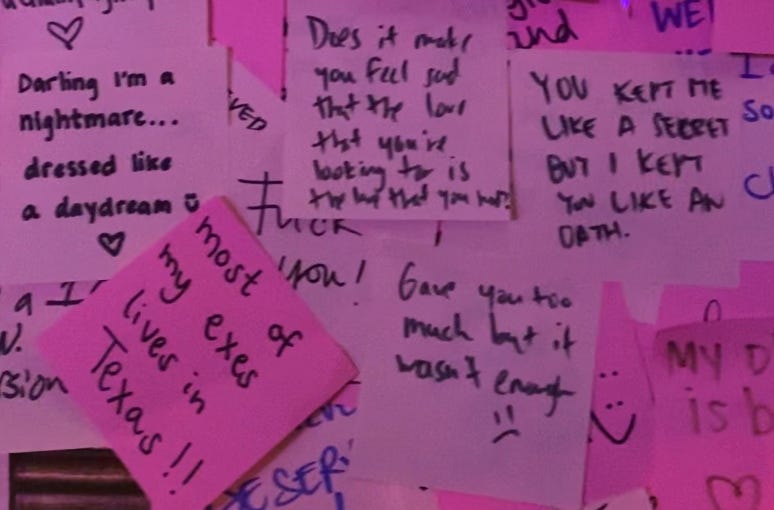 Darling I'm a
nightmare...
dressed like
a daydream
Does it make
you feel sad
that the love
that you're
looking for is
the love that you had?
YOU KEPT ME
LIKE A SECRET
BUT I KEPT
YOU LIKE AN
OATH.
most of
my exes
lives in
Texas!!
Gave you too
much but it
wasn't enough
FUCK
you!
and
WE!
VED
I
So
a I
sion
DESER
MY D
is b